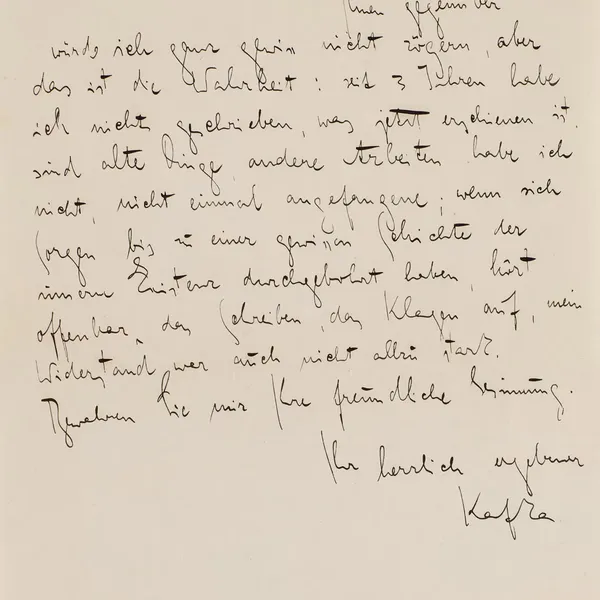 Ihnen gegenüber
würde ich ganz gewiss nicht zögern, aber
das ist die Wahrheit: seit 3 Jahren habe
ich nichts geschrieben, was jetzt erschienen ist,
sind alte Dinge, andere Arbeiten habe ich
nicht, nicht einmal angefangene; wenn sich
Sorgen bis zu einer gewissen Schichte der
innern Existenz durchgebohrt haben, hört
offenbar das Schreiben, das Klagen auf, mein
Widerstand war auch nicht allzu stark.
Bewahren Sie mir Ihre freundliche Gesinnung.
Ihr herzlich ergebener
Kafka